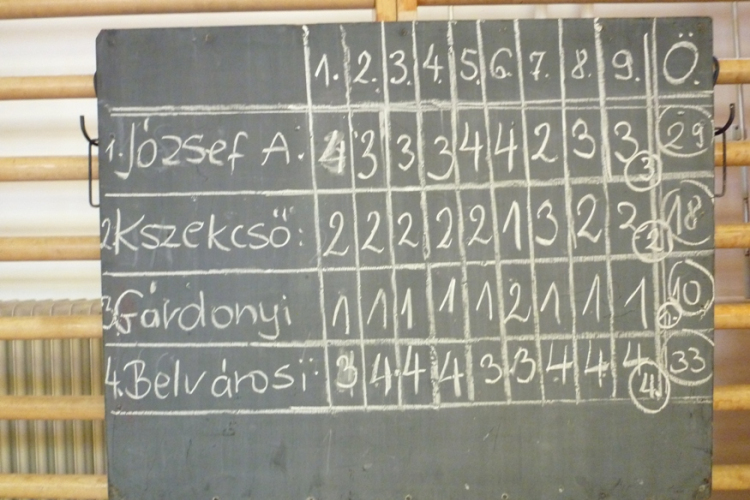 1. 2. 3. 4. 5. 6. 7. 8. 9. Ö.
1. József A. 4 3 3 3 4 4 2 3 3 3 29
2 Kszekcső: 2 2 2 2 2 1 3 2 2 2 18
3 Gárdonyi 1 1 1 1 1 2 1 1 1 1. 10
4. Belvárosi: 3 4 4 4 3 3 4 4 4 4. 33